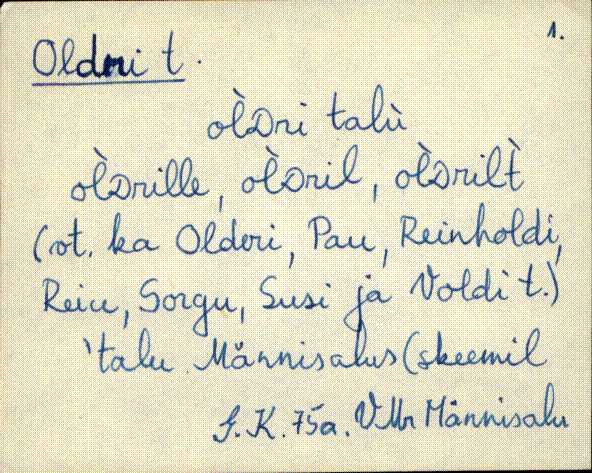 1.
Oldri t.
òl̀Dri talù
òl̀Drille, òl̀Dril, òl̀Dril̀t
(vt. ka Olderi, Pau, Reinholdi,
Reiu, Sorgu, Susi ja Voldi t.)
'talu Männisalus (skeemil
S.K. 75a. VMr Männisalu